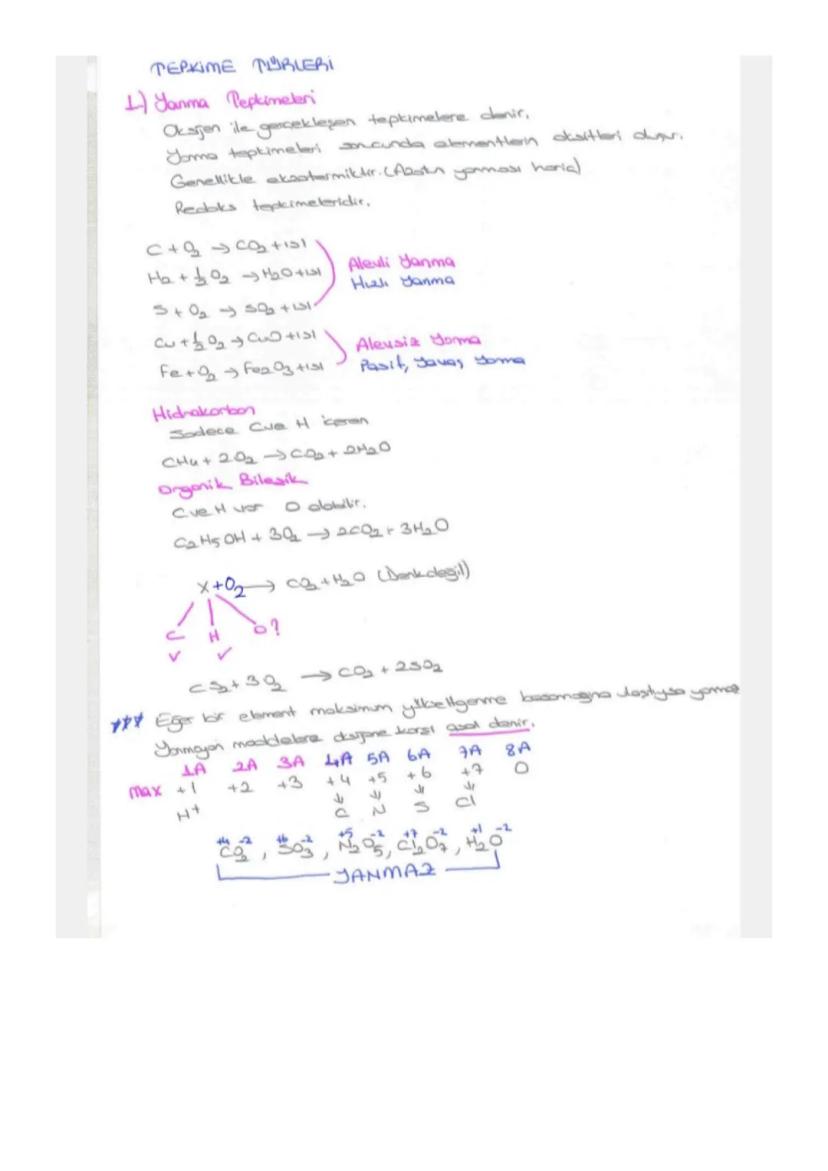 TEPKİME TÜRLERİ
1) Yanma Tepkimeleri
Oksijen ile gerçekleşen tepkimelere denir.
Yanma tepkimeleri sonucunda elementlerin oksitleri oluşur.
Genellikle ekzotermiktir. (Azotun yanması hariç)
Redoks tepkimeleridir.
C + O₂ → CO₂ + ısı
H₂ + ½ O₂ → H₂O + ısı
Alevli Yanma
Hızlı Yanma
S + O₂ → SO₂ + ısı
Cu + ½ O₂ → CuO + ısı
Alevsiz Yanma
Fe + O₂ → Fe₂O₃ + ısı
Pasif, Yavaş Yanma
Hidrokarbon
Sadece C ve H içeren
CH₄ + 2O₂ → CO₂ + 2H₂O
Organik Bileşik
C ve H var O olabilir.
C₂H₅OH + 3O₂ → 2CO₂ + 3H₂O
X + O₂ → CO₂ + H₂O (Denk değil)
C H O?
✓ ✓
CS₂ + 3O₂ → CO₂ + 2SO₂
*** Eğer bir element maksimum yükseltgenme basamağına ulaştıysa yanmaz
Yanmayan maddelere oksijene karşı asal denir.
1A 2A 3A 4A 5A 6A 7A 8A
max +1 +2 +3 +4 +5 +6 +7 0
↓ ↓ ↓ ↓
H⁺ C N S Cl
+4 -2 +6 -2 +5 -2 +7 -2 +1 -2
CO₂, SO₃, N₂O₅, Cl₂O₇, H₂O
YANMAZ